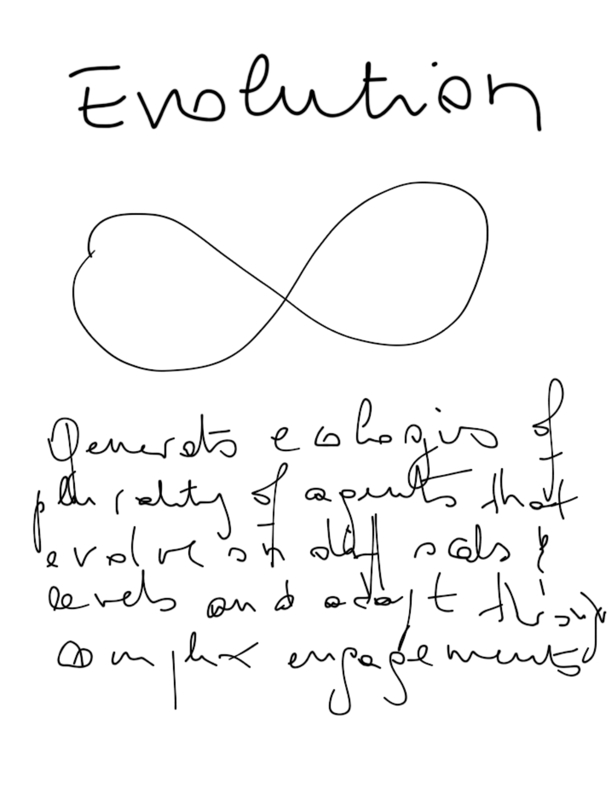 Evolution
Generates ecologies of
plurality of agents that
evolve on diff scales &
levels and adapt through
complex engagements